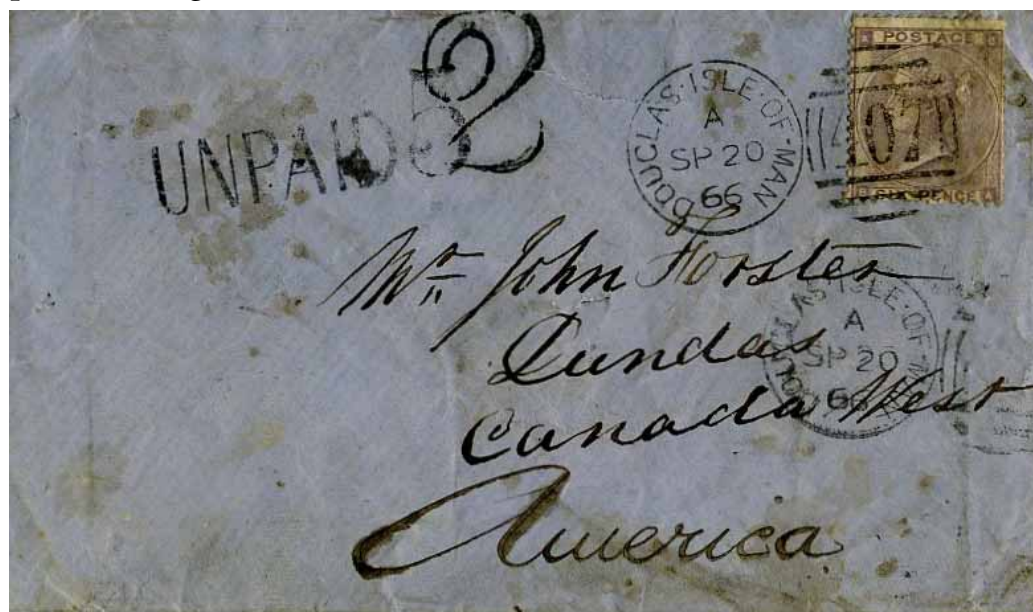 UNPAID 2
DOUGLAS·ISLE·OF·MAN
A
SP 20
66
407
POSTAGE
SIX PENCE
Mr. John Forster
Dundas
Canada West
America
DOUGLAS·ISLE·OF·M
A
SP 20
66